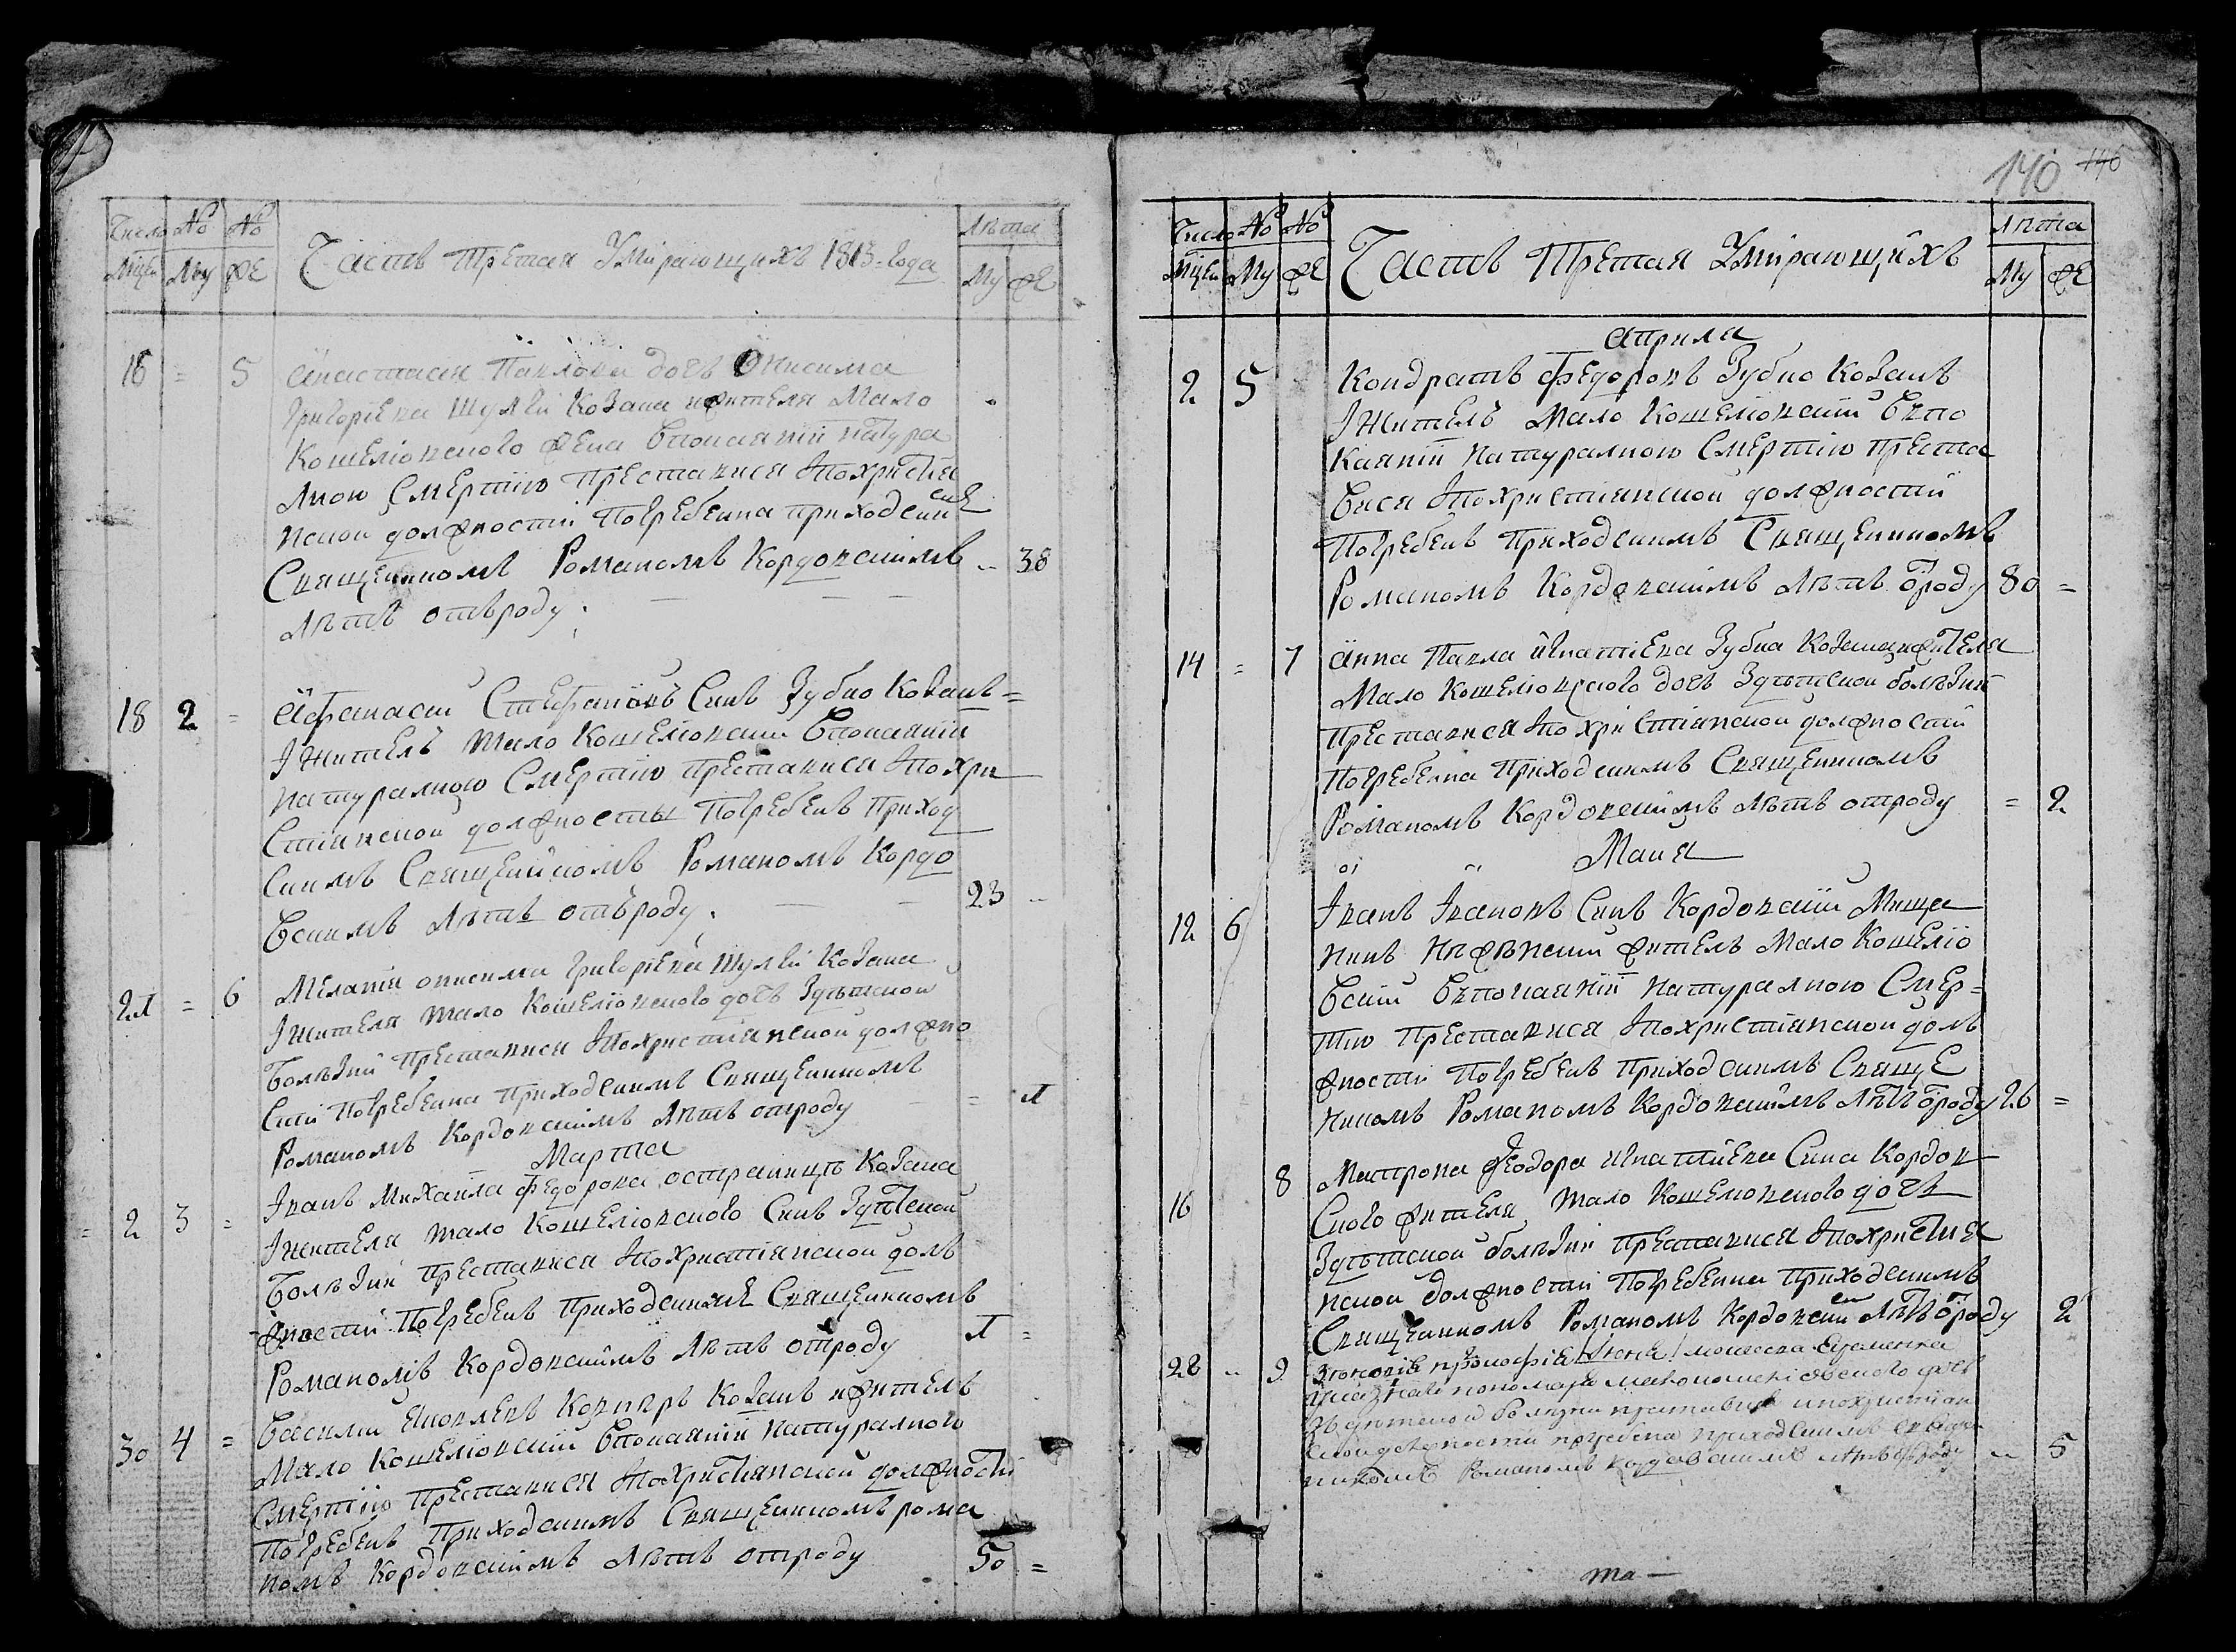 Число № № Лѣта
Мцы Му ФЕ Часть Третая Умѣрающихъ 1813-года Му ФЕ
16 = 5 Анастасия Павлова дочь Онисима
Григорієва Шуляки Козака ижителя Мало
Кошелювского жена впокаяніи натура
лною Смертію Преставися Похристия
нской должности Погребенна приходским
Священникомъ Романомъ Кордовскимъ 38
лѣтъ отъроду.
18 2 = Афанасій Стефановъ Синъ Зубко Козакъ
Іжитель Мало Кошелювский Впокаяніи
натуралною Смертію преставися Похри
Стианской должности Погребенъ Приход
Скимъ Священникомъ Романомъ Кордо
Вскимъ лѣтъ отъроду. 23
21 = 6 Меланія онисима Григорієва Шуляки Козака
Іжителя Мало Кошелювского дочъ Здѣтской
Болѣзни Преставися Похристіянской должно
Сти Погребенна Приходскимъ Священникомъ
Романомъ Кордовскимъ лѣтъ отроду = 1
Марта
= 2 3 = Іванъ Михайла Федорова остраницѣ Козака
Іжителя Мало Кошелювского Синъ Здѣтской
Болѣзни Преставися Похристіянской дол
жности Погребенъ Приходскимъ Священникомъ
Романомъ Кордовскимъ лѣтъ отроду 1 =
30 4 = Василий Яковлевъ Козакъ ижитель
Мало Кошелювский Впокаяніи Натуралною
Смертію Преставися Похристіянской должности
Погребенъ Приходскимъ Священникомъ рома
номъ Кордовскимъ лѣтъ отроду 50 =
140 146
Число № № Лѣта
Мцы Му ФЕ Часть Третая Умѣрающихъ Му ФЕ
Априла
2 5 Кондратъ Федоровъ Зубко Козакъ
Іжитель Мало Кошелювский Впо
каяніи Натуралною Смертію преста
вися Похристіянской должности
Погребенъ Приходскимъ Священникомъ
Романомъ Кордовскимъ лѣтъ ѿроду 80 =
14 = 7 Анна Павла Игнатієва Зубка Козака ижителя
Мало Кошелювского дочъ Здѣтской болѣзни
Преставися Похристіянской должности
Погребенна Приходскимъ Священникомъ
Романомъ Кордовскимъ лѣтъ отроду = 2
Мая
12 6 Іванъ Івановъ Синъ Кордовский Мища
нинъ Нѣжѣнский житель Мало Кошелю
Вский Впокаяніи Натуралною Смер=
тію Преставися Похристіянской дол
жности Погребенъ Приходскимъ Свяще
нникомъ Романомъ Кордовскимъ Лѣтъ ѿроду 26 =
16 8 Матрона Феодора Игнатиева Сина Кордов
Ского жителя Мало Кошелювского дочъ
Здѣтской болѣзни Преставися Похристия
нской должности Погребенна Приходскимъ
Священникомъ Романомъ Кордовским Лѣтъ ѿроду 2
28 = 9
пономаря дочъ
здѣтской болѣзни преставися похристиан
ской должности погребена приходскимъ свяще
никомъ Романомъ Кордовскимъ лѣтъ ѿроду = 5
Ма —